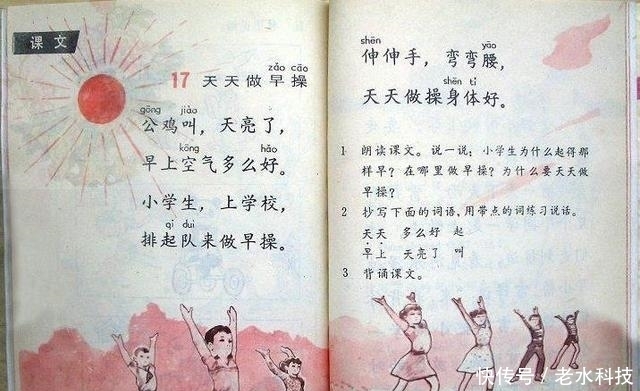 课文
zǎo cāo
17 天天做早操
gōng jiào
公鸡叫，天亮了，
kōng hǎo
早上空气多么好。
小学生，上学校，
qǐ duì
排起队来做早操。
shēn yāo
伸伸手，弯弯腰，
shēn tǐ
天天做操身体好。
1 朗读课文。说一说：小学生为什么起得那
样早？在哪里做早操？为什么要天天做
早操？
2 抄写下面的词语，用带点的词练习说话。
天天 多么好 起
早上 天亮了 叫
3 背诵课文。
快传号/老水科技